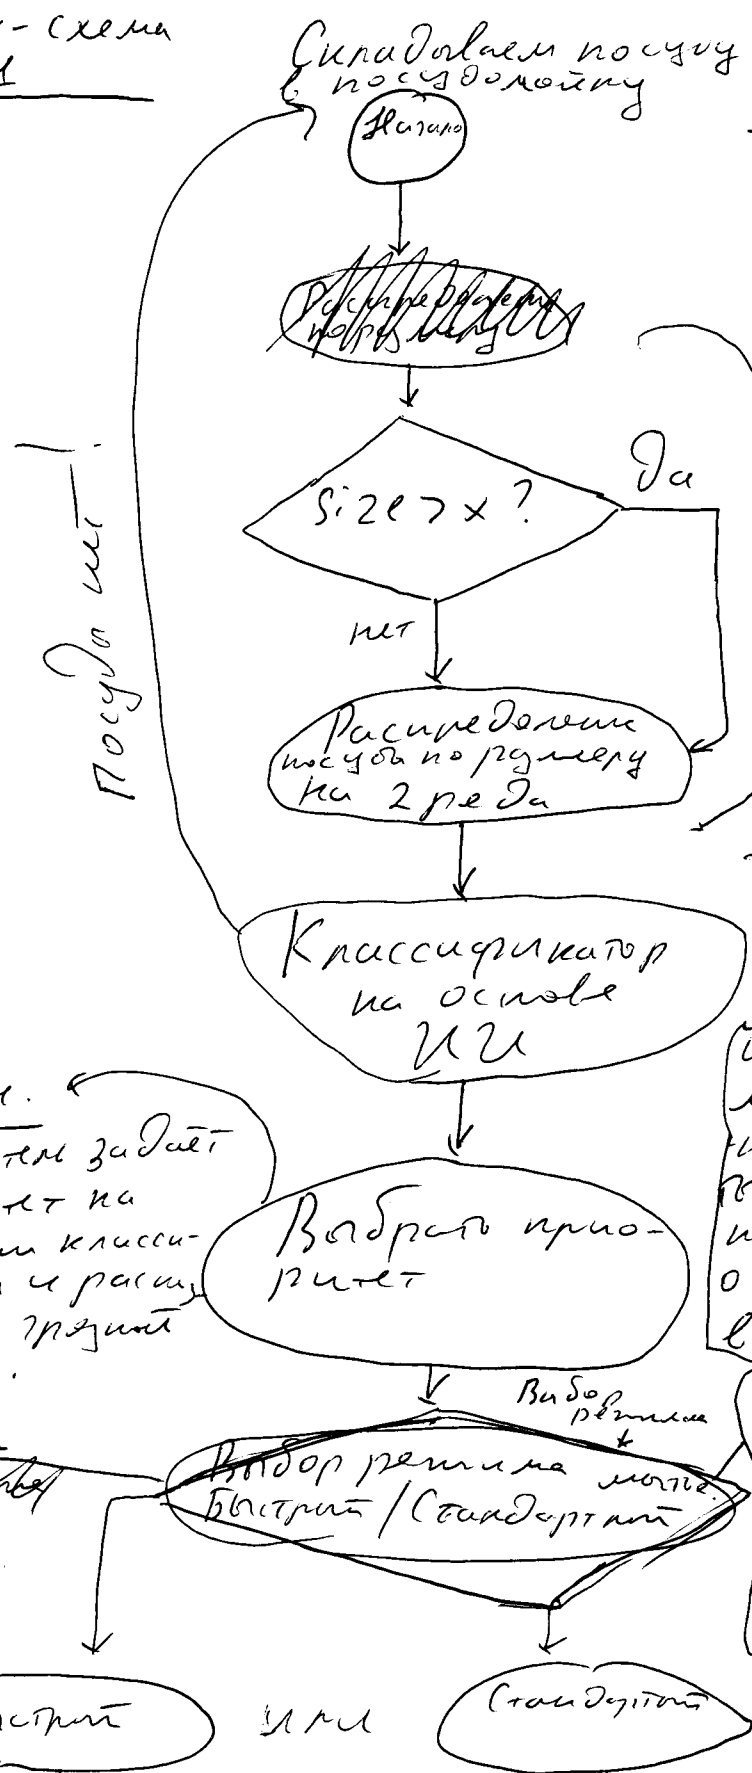 - схема
1
Складываем посуду
в посудомойку
Начало
Распределение
по размеру
size > x ?
Да
нет
Посуды нет!
Распределение
посуды по размеру
на 2 ряда
Классификатор
на основе
ИИ
задаёт
на
класси-
и
грязной
Выбрать прио-
ритет
Выбор
режима
Выбор режима мытья.
Быстрый / Стандартный
или
Стандартный